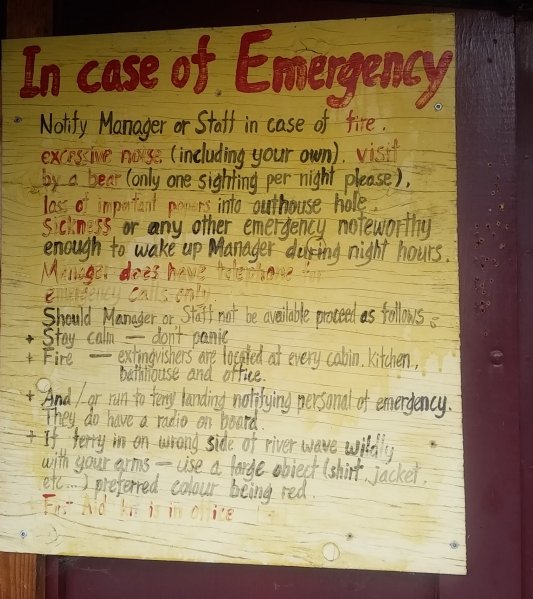 In case of Emergency
Notify Manager or Staff in case of fire,
excessive noise, (including your own), visit
by a bear (only one sighting per night please),
loss of important papers into outhouse hole,
sickness or any other emergency noteworthy
enough to wake up Manager during night hours.
Manager does have telephone for
emergency calls only
Should Manager or Staff not be available proceed as follows:
+ Stay calm — don't panic
+ Fire — extinguishers are located at every cabin, kitchen,
bathhouse and office.
+ And/or run to ferry landing notifying personal of emergency.
They do have a radio on board.
+ If ferry in on wrong side of river wave wildly
with your arms — use a large object (shirt, jacket,
etc...) preferred colour being red.
+ First Aid kit is in office